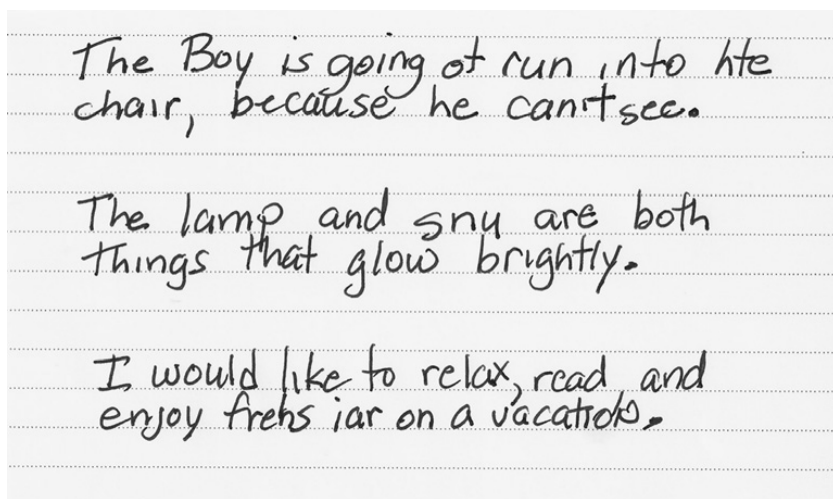 The Boy is going ot run into hte
chair, because he can't see.
The lamp and snu are both
things that glow brightly.
I would like to relax, read and
enjoy frehs iar on a vacation.